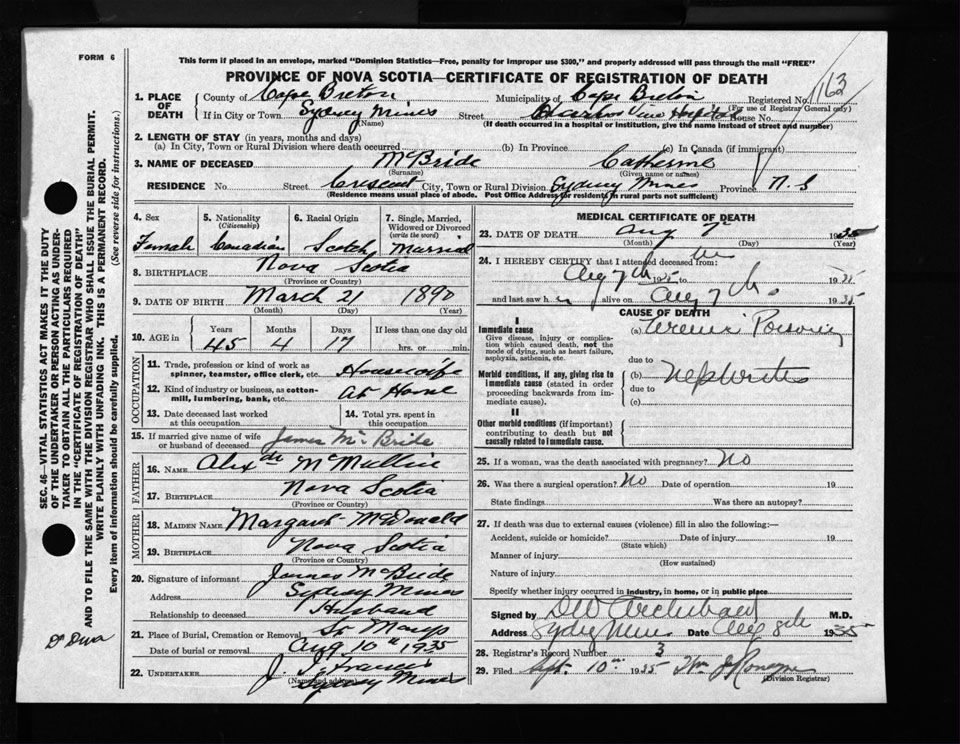 FORM 6
This form if placed in an envelope, marked "Dominion Statistics—Free, penalty for improper use $300," and properly addressed will pass through the mail "FREE"
PROVINCE OF NOVA SCOTIA—CERTIFICATE OF REGISTRATION OF DEATH
1. PLACE OF DEATH County of Cape Breton Municipality of Cape Breton Registered No. 1163
(For use of Registrar General only)
If in City or Town Sydney Mines Street Harbor View Hospital House No.
(Name) (If death occurred in a hospital or institution, give the name instead of street and number)
2. LENGTH OF STAY (in years, months and days)
(a) In City, Town or Rural Division where death occurred (b) In Province (c) In Canada (if immigrant)
3. NAME OF DECEASED McBride Catherine
(Surname) (Given name or names)
RESIDENCE No. Street Crescent City, Town or Rural Division Sydney Mines Province N.S
(Residence means usual place of abode. Post Office Address for residents in rural parts not sufficient)
4. Sex 5. Nationality (Citizenship) 6. Racial Origin 7. Single, Married, Widowed or Divorced (write the word)
Female Canadian Scotch Married
8. BIRTHPLACE Nova Scotia
(Province or Country)
9. DATE OF BIRTH March 21 1890
(Month) (Day) (Year)
10. AGE in Years Months Days If less than one day old
45 4 17 hrs. or min.
OCCUPATION
11. Trade, profession or kind of work as spinner, teamster, office clerk, etc. Housewife
12. Kind of industry or business, as cotton-mill, lumbering, bank, etc. At Home
13. Date deceased last worked at this occupation 14. Total yrs. spent in this occupation
15. If married give name of wife or husband of deceased James McBride
FATHER
16. NAME Alexdr McMullin
17. BIRTHPLACE Nova Scotia
(Province or Country)
MOTHER
18. MAIDEN NAME Margaret McDonald
19. BIRTHPLACE Nova Scotia
(Province or Country)
20. Signature of informant James McBride
Address Sydney Mines
Relationship to deceased Husband
21. Place of Burial, Cremation or Removal St Marys
Date of burial or removal Aug 10th 1935
22. UNDERTAKER J. J. Francis
(Name and address) Sydney Mines
MEDICAL CERTIFICATE OF DEATH
23. DATE OF DEATH Aug 7 1935
(Month) (Day) (Year)
24. I HEREBY CERTIFY that I attended deceased from:
Aug 7th 1935 to 1935
and last saw her alive on Aug 7th 1935
CAUSE OF DEATH
I
Immediate cause (a) Uremic Poisoning
Give disease, injury or complication which caused death, not the mode of dying, such as heart failure, asphyxia, asthenia, etc.
due to
Morbid conditions, if any, giving rise to immediate cause (stated in order proceeding backwards from immediate cause).
(b) Nephritis
due to
(c)
II
Other morbid conditions (if important) contributing to death but not causally related to immediate cause.
25. If a woman, was the death associated with pregnancy? No
26. Was there a surgical operation? No Date of operation 19
State findings Was there an autopsy?
27. If death was due to external causes (violence) fill in also the following:—
Accident, suicide or homicide? Date of injury 19
(State which)
Manner of injury
(How sustained)
Nature of injury
Specify whether injury occurred in industry, in home, or in public place
Signed by DW Archibald M.D.
Address Sydney Mines Date Aug 8th 1935
28. Registrar's Record Number 3
29. Filed Sept. 10th 1935
(Division Registrar)
SEC. 46—VITAL STATISTICS ACT MAKES IT THE DUTY
OF THE UNDERTAKER OR PERSON ACTING AS UNDER-
TAKER TO OBTAIN ALL THE PARTICULARS REQUIRED
IN THE "CERTIFICATE OF REGISTRATION OF DEATH"
AND TO FILE THE SAME WITH THE DIVISION REGISTRAR WHO SHALL ISSUE THE BURIAL PERMIT.
WRITE PLAINLY WITH UNFADING INK. THIS IS A PERMANENT RECORD.
Every item of information should be carefully supplied. (See reverse side for instructions.)